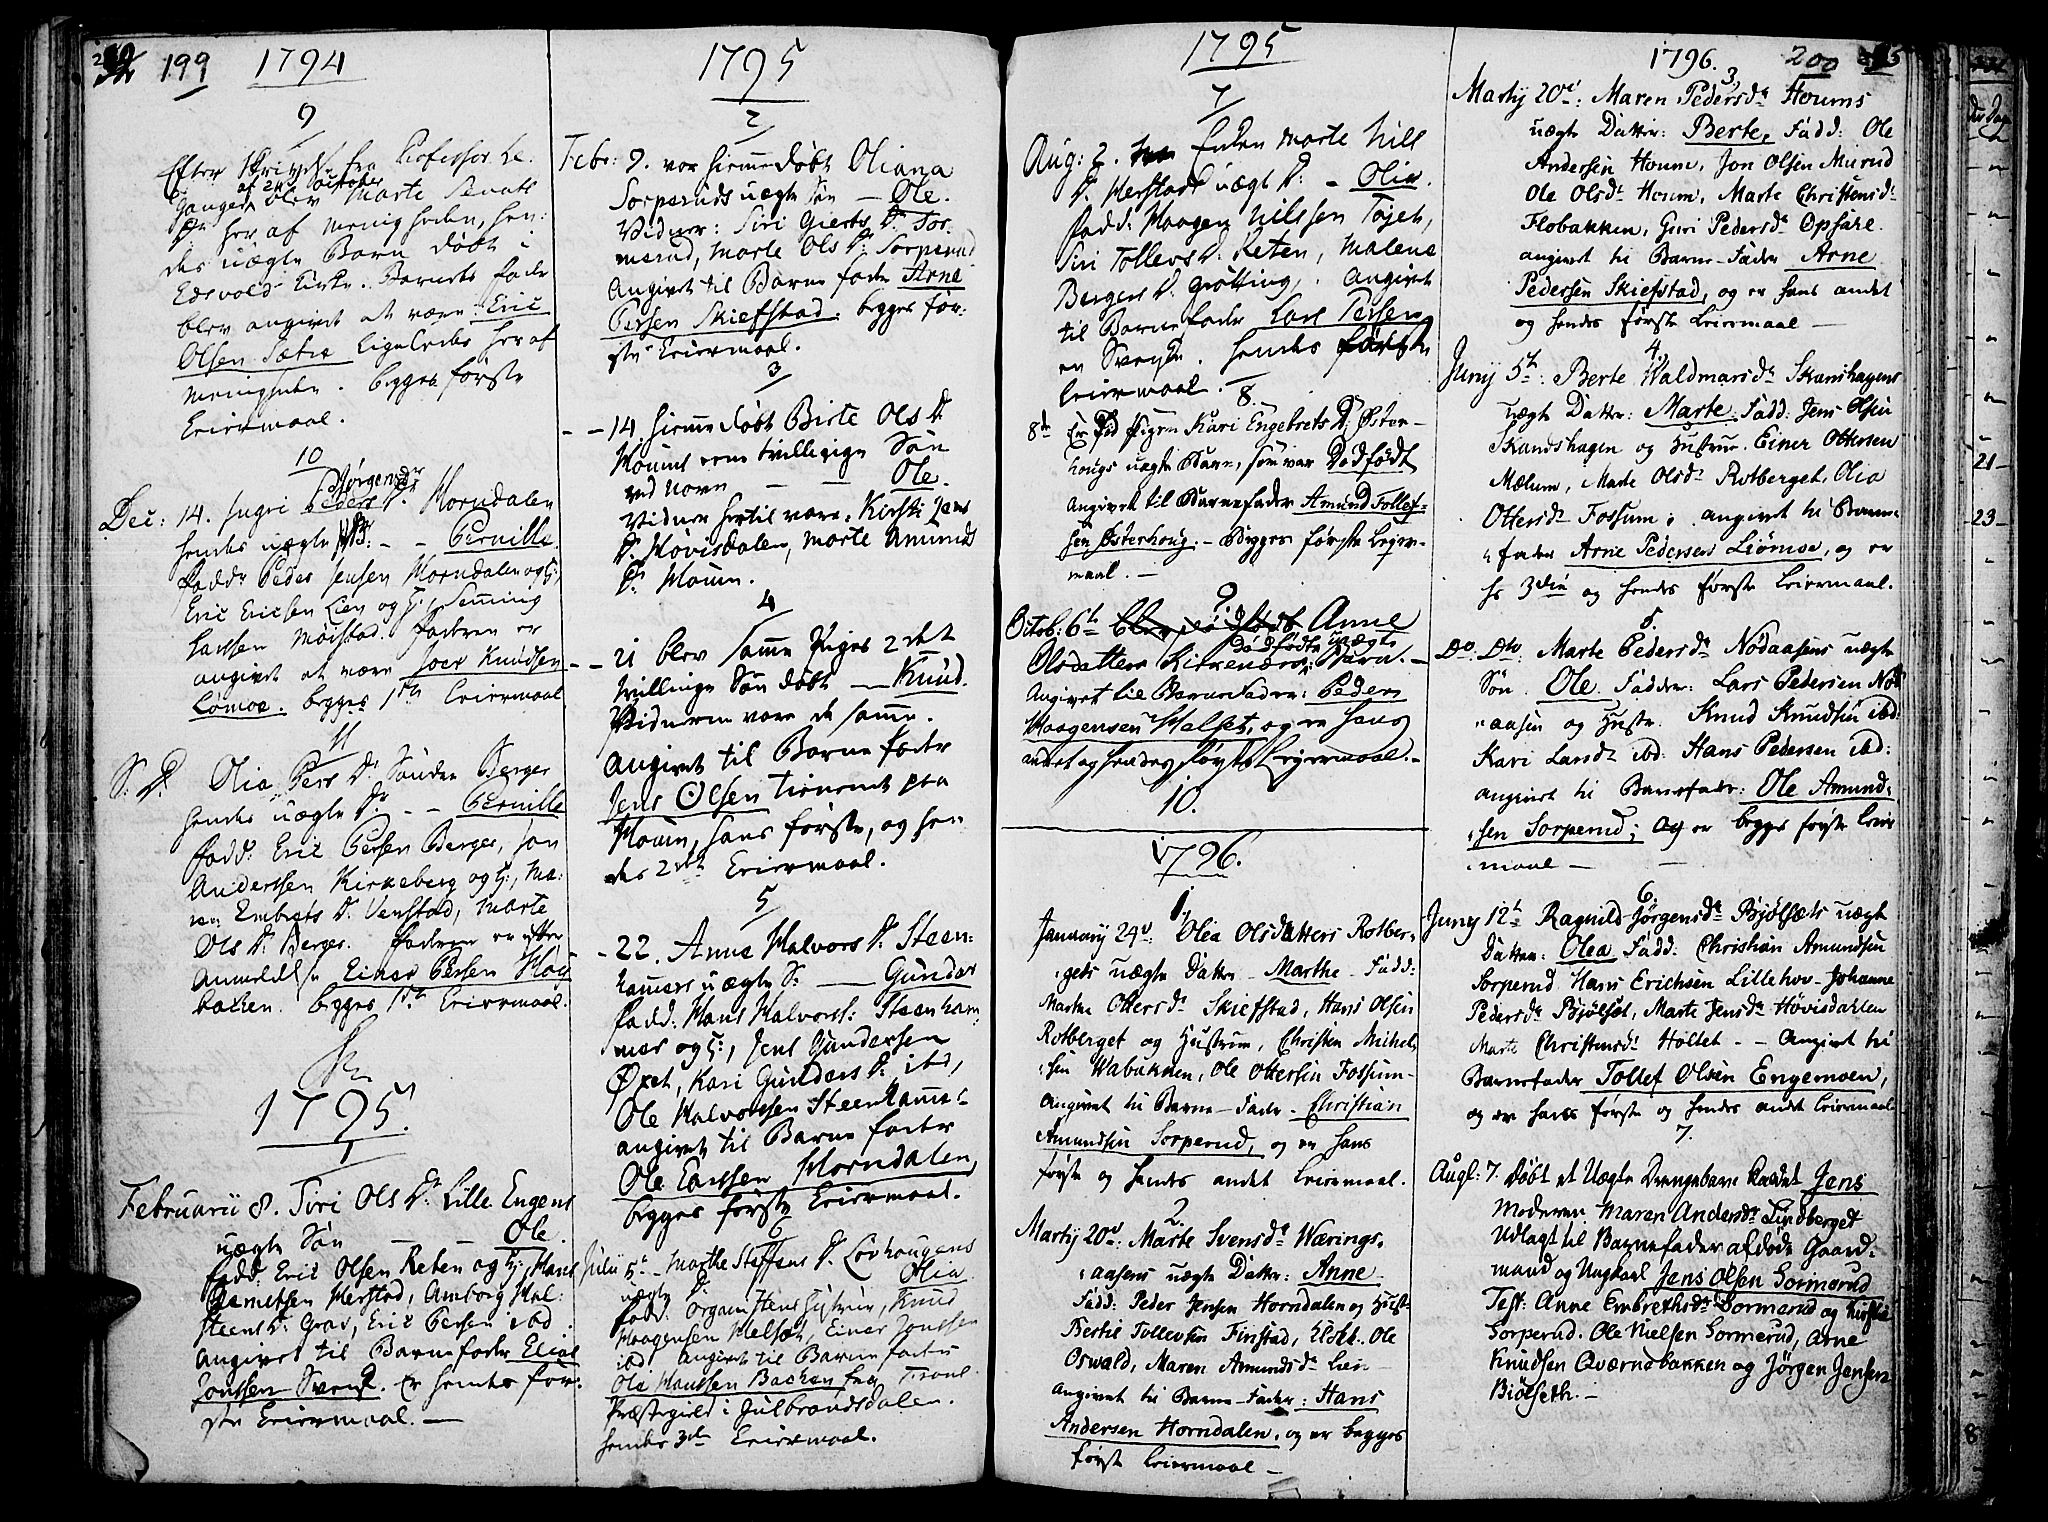 199 1794
9
Efter Skrivelse fra Professor Le-
Ganger af 24 October blev Marte
Dr her af Menigheden, hen:
des uægte Barn døbt i
Edsvold Kirke. Barnets fader
blev angivet at være Eric
Olsen Sætre ligeledes her af
Menigheden. begges første
Leiermaal.
10
Dec: 14. Ingri Jørgens Dr Horndalen
hendes uægte - - Pernille.
fadd: Peder Jensen Horndalen og H:,
Eric Ericsen Lien og H:, Semming
Larssen Møistad. faderen er
angivet at være Joer Knudsen
Lømoe. begges 1ste Leiermaal
11
S: D. Olia Pers Dr Sønden Berger
hendes uægte Dr - - Pernille
fadd: Eric Persen Berger, Jon
Anderssen Kirkeberg og H:, Ma:
ren Embrets Dr Venstad, Marte
Ols Dr Berger. faderen er efter
Anmeldelse Einer Persen Houg
backen. begges 1ste Leiermaal.
1795.
1
Februarii 8. Siri Ols Dr Lille Engens
uægte Søn - - Ole.
fadd: Eric Olsen Reten og H:, Hans
Herstad, Amborg Hal:
steens Dr Grav, Eric Persen ibd
Angivet til Barnefader Elias
Jonssen Svensk. Er hendes før:
ste Leiermaal. —
1795
2
Febr: 9. var hiemmedøbt Oliana
Sorperuds uægte Søn — Ole.
Vidner: Siri Gierts Dr Sor
merud, Marte Ols Dr Sorperud
Angivet til Barne fader Arne
Persen Skiefstad. begges før:
ste Leiermaal.
3
- - 14 hiemmedøbt Birte Ols Dr
Houms een tvillinge Søn
ved Navn — — Ole.
Vidner hertil vare: Kirsti Jens
Dr Høvisdalen, Marte Amunds
Dr Houm.
4
- - 21 blev samme Piges 2det
tvillinge Søn døbt — Knud.
Vidnerne vare de samme.
Angivet til Barne fader
Jens Olsen tienende paa
Houm, hans første, og hen
des 2det Leiermaal.
5
- 22. Anne Halvors Dr Steen:
hamers uægte S: — Gunder
fadd: Hans Halvors: Steenham:
mer og H:, Jens Gundersen
Øxet, Kari Gunders Dr ibd,
Ole Halvorssen Steenhamer
angivet til Barne fader
Ole Larssen Horndalen,
begges første Leiermaal.
6
Julii 5te Marthe Steffens Dr Løvhougens
uægte Dr Olia
fadd: Hustrue, Knud
Haagensen Melsæt, Einer Jonssen
ibd Angivet til Barne fader
Ole Hanssen Backen fra
Præstegield i Gulbrandsdalen.
hendes 3die Leiermaal.
1795
7
Aug: 2. Enken Marte Nils
Dr Herstad uægt Dr - Olia.
fadd: Haagen Nilssen Tøjet,
Siri Tollevs Dr Reten, Malene
Bergers Dr Grøtting, Angivet
til Barnefader Lars Persen
en Svensk. hendes første
Leiermaal.
8.
8de Er Pigen Kari Engebrets D: Øster-
hougs uægte Barn, som var Dødfødt
Angivet til Barnefader Amund Tollef-
sen Østerhoug. - Begges første Leyer-
maal. —
9.
Octob: 6te blev dødfødt Anne
Olsdatters Kirkenærs dødfødte uægte Barn. -
Angivet til Barnefader: Peder
Haagensen Halset, og er hans
andet og hendes første Leyermaal. -
10.
1796.
1.
January 24de: Olea Olsdatters Rotber-
gets uægte Datter - Marthe - Fadd:
Marthe Ottersdr Skiefstad, Hans Olsen
Rotberget og Hustrue, Christen Michel-
sen Wabakken, Ole Ottersen Fossum-
Angivet til Barne-Fader. Christian
Amundsen Sorperud, og er hans
første og hendes andet Leiermaal.
2.
Martij 20de: Marte Svensdr Wærings-
aasens uægte Datter: Anne
Fadd: Peder Jensen Horndalen og Hust:
Berthe Tollevsen Finstad, Klokk. Ole
Oswald, Maren Amundsdr Lien
Angivet til Barne-Fader: Hans
Andersen Horndalen, og er begges
første Leiermaal —
1796. 200
3.
Martij 20de: Maren Pedersdr Houms
uægte Datter: Berte, Fadd: Ole
Andersen Houm, Jon Olsen Murud
Ole Olsdr Houm, Marte Christensdr
Flobakken, Guri Pedersdr Opsahl.
angivet til Barne-Fader Arne
Pedersen Skiefstad, og er hans andet
og hendes første Leiermaal —
4.
Juny 5te: Berte Waldmarsdr Skanshagens
uægte Datter: Marte. Fadd: Jens Olsen
Skandshagen og Hustrue. Einer Ottersen
Mælum, Marte Olsdr Rotberget, Olia
Ottersdr Fossum; angivet til Barne-
fader Arne Pedersen Liømoe, og er
hs 3die og hendes første Leiermaal.
5.
Do Dto: Marte Pedersdr Nødaasens uægte
Søn. Ole. Fadder: Lars Pedersen Nød
aasen og Hustr. Knud Knudsen ibd.
Kari Larsdr ibd: Hans Pedersen ibd:
angivet til Barnefader: Ole Amund-
sen Sorperud; og er begges første Leier
maal —
6.
Juny 12te Ragnild Jørgensdr Bjølsets uægte
Datter: Olea Fadd: Christian Amundsen
Sorperud Hans Erichsen Lillehov - Johanne
Pedersdr Bjølset, Marte Jensdr Høvisdahlen
Marte Christensdr Holtet - - Angivet til
Barnefader Tollef Olsen Engemoen,
og er hans første og hendes andet Leiermaal
7.
Augt: 7. Døbt et Uægte Drengebarn kaldet Jens
Moderen Maren Andersdr Lindberget
Udlagt til Barnefader afdøde Gaard-
mand og Ungkarl Jens Olsen Sormerud
Test: Anne Embrethsdr Sormerud og Kirstie
Sorperud. Ole Nielsen Sormerud, Arne
Knudsen Qværnebakken og Jørgen Jensen
Biølseth. -
21
23
8